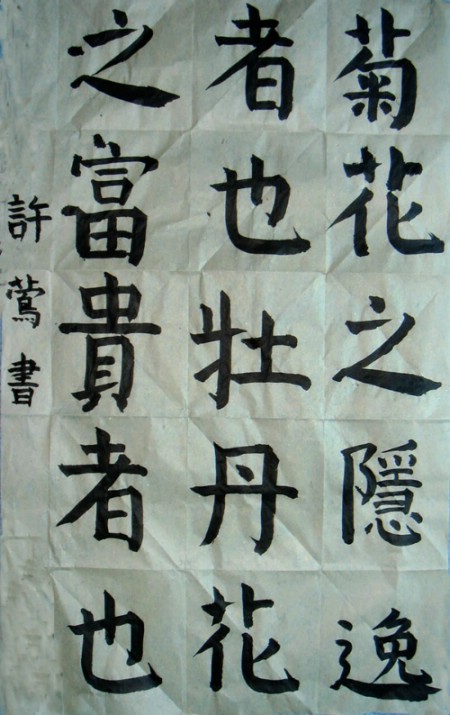 菊花之隱逸
者也牡丹花
之富貴者也
許鶯書